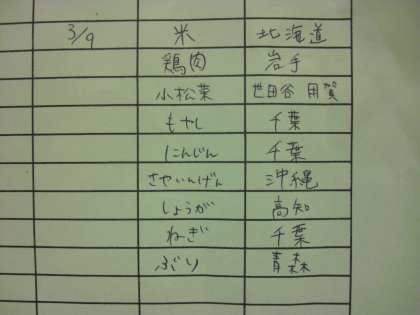 3/9 米 北海道
鶏肉 岩手
小松菜 世田谷 用賀
もやし 千葉
にんじん 千葉
さやいんげん 沖縄
しょうが 高知
ねぎ 千葉
ぶり 青森